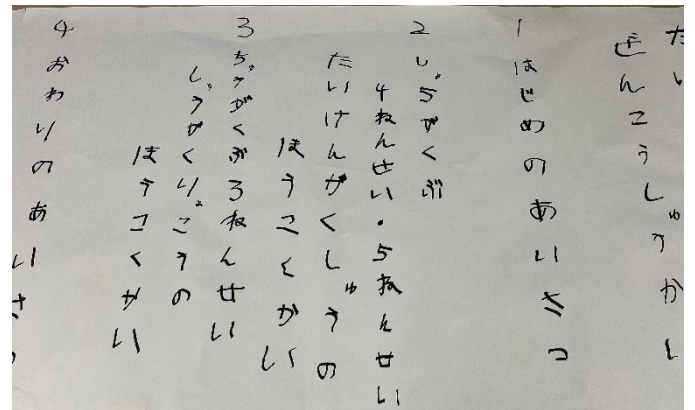 たい
ぜんこうしゅうかい
1 はじめのあいさつ
2 しょうがくぶ
4ねんせい・5ねんせい
たいけんがくしゅうの
ほうこくかい
3 ちゅうがくぶ3ねんせい
しゅうがくりょこうの
ほうこくかい
4 おわりのあいさつ